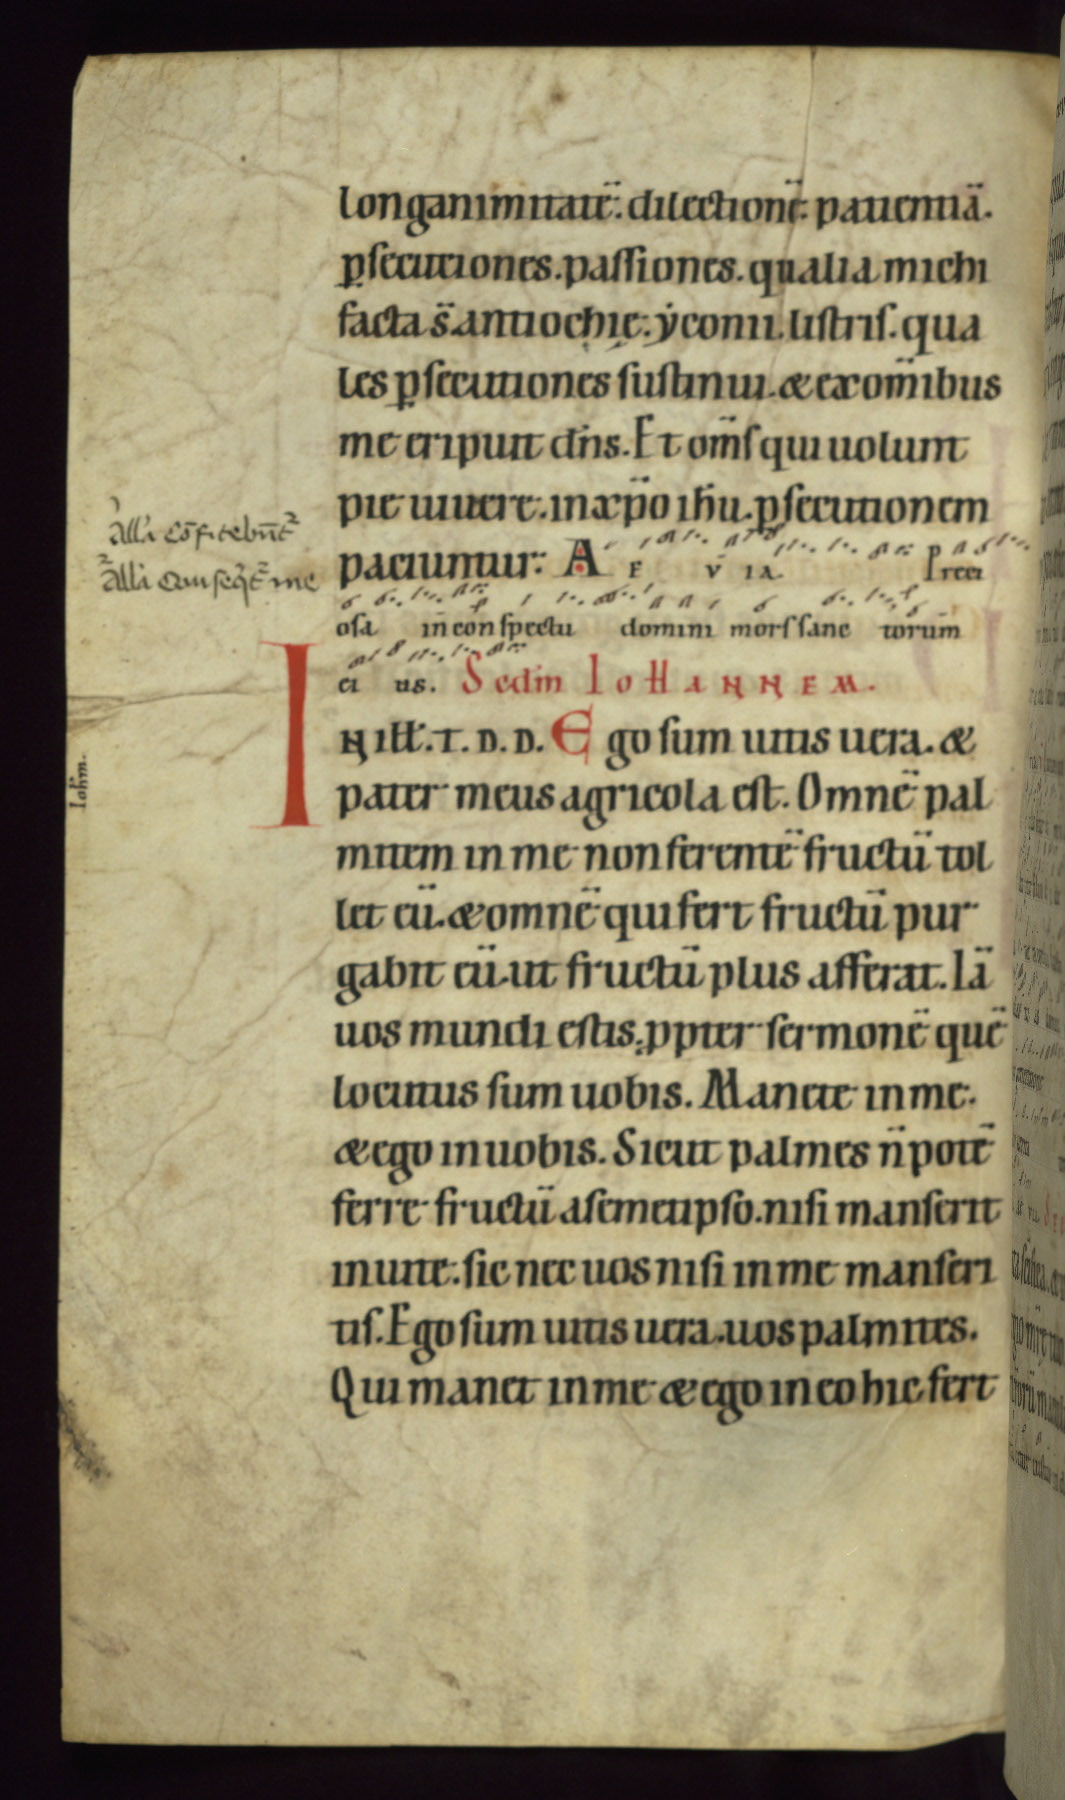 longanimitatē. dilectionē. patientiā.
ꝑsecutiones. passiones. qualia michi
facta s̄ antiochie. ẏconii. listris. qua
les ꝑsecutiones sustinui. & ex om̄ibus
me eripuit dn̄s. Et om̄s qui uolunt
pie uiuere. in xp̄o ih̄u. ꝑsecutionem
alla Cōfitebunt̄
alla Qui seqt̄ me
paciuntur: A E V IA. Preci
osa in conspectu domini mors sanc torum
ei us. Scd̄m IOHANNEM.
Ioh̄m.
IN ILL. T. D. D. Ego sum uitis uera. &
pater meus agricola est. Omnē pal
mitem in me non ferentē fructū tol
let eū. & omnē qui fert fructū pur
gabit eū. ut fructū plus afferat. Iā
uos mundi estis. ꝓpter sermonē quē
locutus sum uobis. Manete in me.
& ego in uobis. Sicut palmes n̄ potē
ferre fructū a semetipso. nisi manserit
in uite. sic nec uos nisi in me manseri
tis. Ego sum uitis uera. uos palmites.
Qui manet in me & ego in eo hic fert